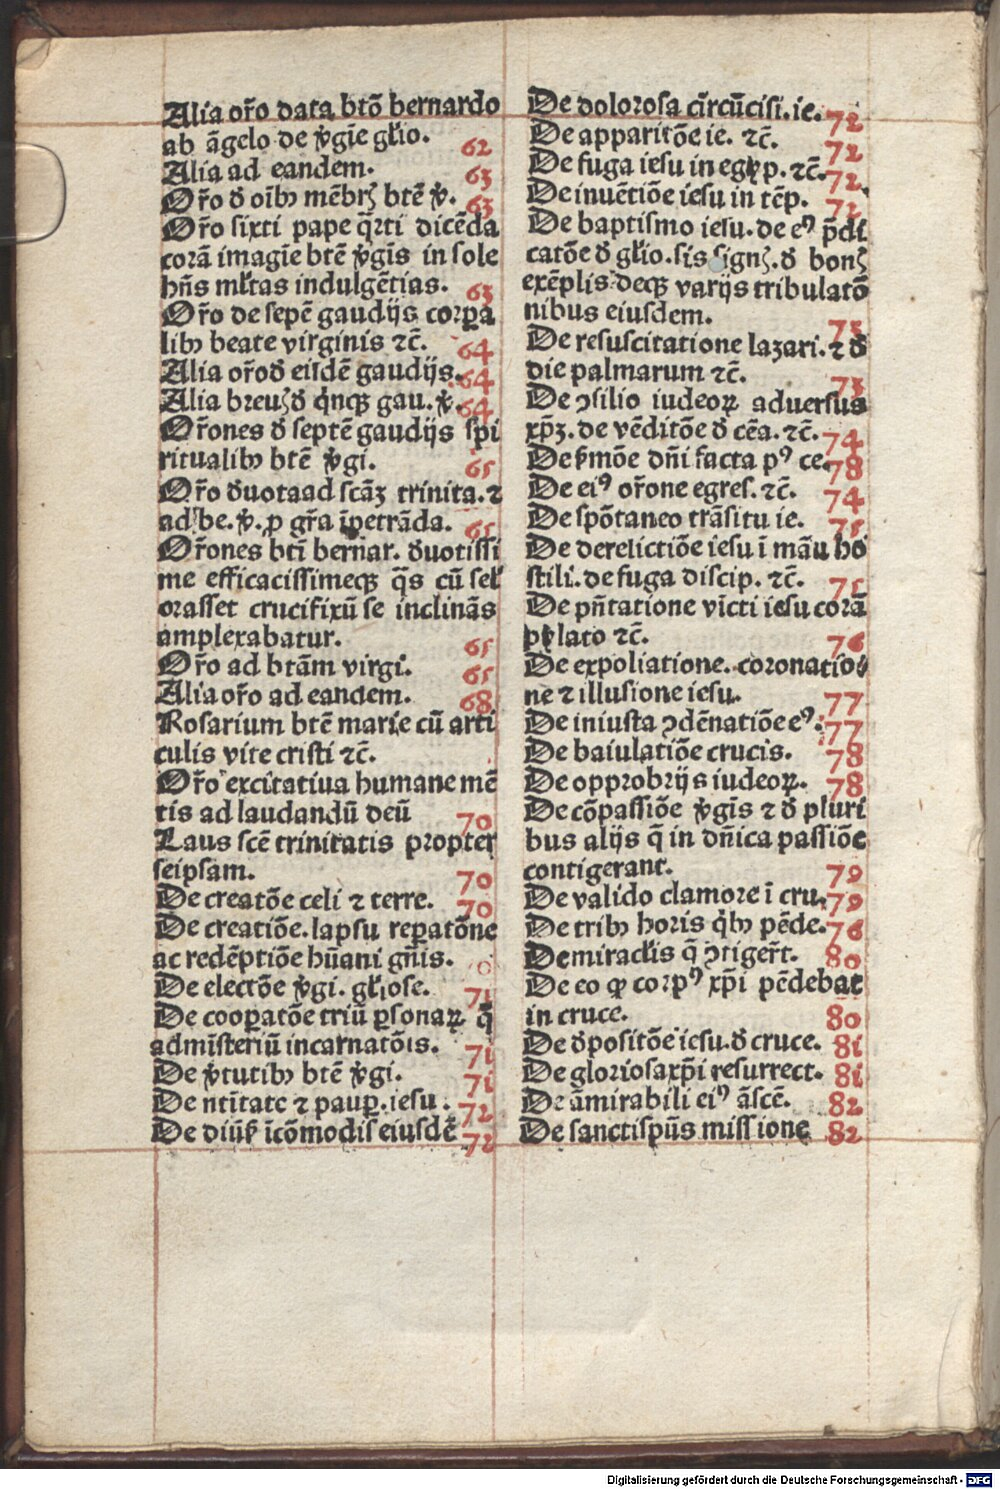 Alia or̃o data btõ bernardo
ab ãgelo de v̾gĩe gl̃io. 62
Alia ad eandem. 63
Or̃o ꝺ oĩbꝰ mẽbrꝭ btẽ v̾. 63
Or̃o sixti pape q̃rti dicẽda
corã imagĩe btẽ v̾gĩs in sole
hñs ml̃tas indulgẽtias. 63
Or̃o de sepẽ gaudijs corꝑa
libꝰ beate virginis ⁊c̃. 64
Alia or̃oꝺ eisdẽ gaudijs. 64
Alia breuꝭꝺ q̇nqꝫ gau. v̾. 64
Or̃ones ꝺ septẽ gaudijs spi
ritualibꝰ btẽ v̾gi. 65
Or̃o ꝺuotaad scãꝫ trinita. ⁊
ad be. v̾. ꝓ gr̃a ĩpetrãda. 65
Or̃ones btĩ bernar. ꝺuotissi
me efficacissimeqꝫ q̃s cũ sel̃
orasset crucifixũ se inclinãs
amplexabatur. 65
Or̃o ad btãm virgi. 65
Alia or̃o ad eandem. 68
Rosarium btẽ marie cũ arti
culis vite cristi ⁊c̃.
Or̃o excitatiua humane mẽ
tis ad laudandũ deũ 70
Laus scẽ trinitatis propter
seipsam. 70
De creatõe celi ⁊ terre. 70
De creatiõe. lapsu reꝑatõne
ac redẽptiõe hũani gñis. 0
De electõe v̾gi. gl̃iose. 71
De cooꝑatõe triũ ꝑsonaꝝ q̃
admĩsteriũ incarnatõis. 71
De v̾tutibꝰ btẽ v̾gi. 71
De ntĩtate ⁊ pauꝑ. iesu. 72
De diũs̾ ĩcõmodis eiusdẽ 72
De dolorosa cĩrcũcisi. ie. 72
De apparitõe ie. ⁊c̃. 72
De fuga iesu in egẏp. ⁊c̃. 72
De inuẽtiõe iesu in tẽp. 72
De baptismo iesu. de eꝰ p̃di
catõe ꝺ gl̃io. sis signꝭ. ꝺ bonꝭ
exẽplis deqꝫ varijs tribulatõ
nibus eiusdem. 73
De resuscitatione lazari. ⁊ ꝺ
die palmarum ⁊c̃. 73
De ꝯsilio iudeoꝝ aduersus
xp̃ꝫ. de vẽditõe ꝺ cẽa. ⁊c̃. 74
De s̾mõe dñi facta pꝰ ce. 78
De eiꝰ or̃one egres. ⁊c̃. 74
De spõtaneo trãsitu ie. 75
De derelictiõe iesu ĩ mãu ho
stili. de fuga discip. ⁊c̃. 75
De pñtatione vĩcti iesu corã
pẏlato ⁊c̃. 76
De expoliatione. coronatiõi
ne ⁊ illusione iesu. 77
De iniusta ꝯdẽnatiõe eꝰ. 77
De baiulatiõe crucis. 78
De opprobrijs iudeoꝝ. 78
De cõpassiõe v̾gĩs ⁊ ꝺ pluri
bus alijs q̃ in dñica passiõe
contigerant. 79
De valido clamore ĩ cru. 79
De tribꝰ horis q̇bꝰ pẽde. 76
De miracl̃is q̃ ꝯtiger̃t. 80
De eo ꝙ corpꝰ xp̃i pẽdebat
in cruce. 80
De ꝺpositõe iesu. ꝺ cruce. 81
De gloriosaxp̃i resurrect. 81
De ãmirabili eiꝰ ãscẽ. 82
De sanctispũs missione 82
Digitalisierung gefördert durch die Deutsche Forschungsgemeinschaft - DFG